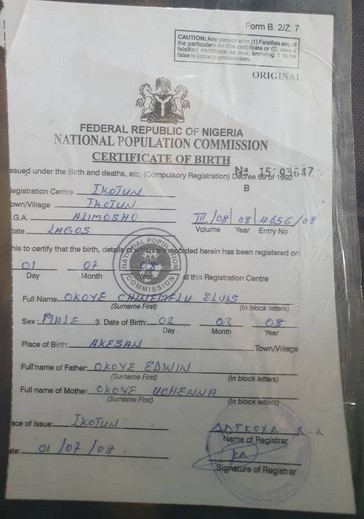 Form B. 2/Z. 7
CAUTION: Any person who (1) Falsifies any of
the particulars on this certificate or (2) uses a
falsified certificate as true, knowing it to be
false is liable to prosecution.
ORIGINAL
FEDERAL REPUBLIC OF NIGERIA
NATIONAL POPULATION COMMISSION
CERTIFICATE OF BIRTH
ssued under the Birth and deaths, etc. (Compulsory Registration) Decree 69 of 1992
No 15193647
B
egistration Centre IKOTUN
own/Village IKOTUN
.G.A. ALIMOSHO III / 08 / 08 / 4656 / 08
tate LAGOS Volume Year Entry No
his to certify that the birth, details of which are recorded herein has been registered on
01 07 08
Day Month Year at this Registration Centre
NATIONAL POPULATION COMMISSION
Full Name: OKOYE ELVIS
(Surname First) (In block letters)
Sex: MALE 3. Date of Birth: 02 03 08
Day Month Year
Place of Birth: AKESAN Town/Village
Full name of Father: OKOYE EDWIN
(Surname First) (In block letters)
Full name of Mother: OKOYE UCHENNA
(Surname First) (In block letters)
ace of Issue: IKOTUN
Name of Registrar
ate: 01/07/08.
Signature of Registrar